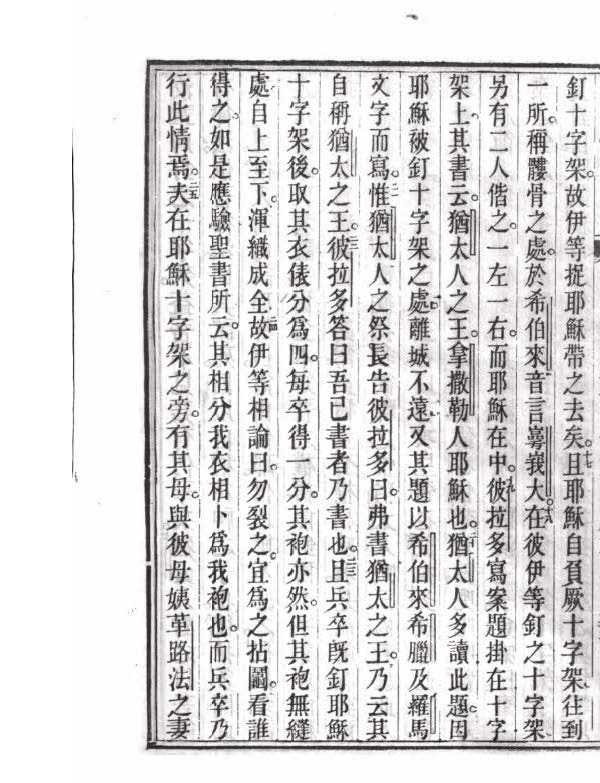 釘十字架故伊等捉耶穌帶之去矣。十七且耶穌自負厥十字架往到
一所稱髏骨之處。於希伯來音言㝵峩大。十八在彼伊等釘之十字架
另有二人偕之。一左一右。而耶穌在中。十九彼拉多寫案題掛在十字
架上。其書云。猶太人之王拿撒勒人耶穌也。猶太人多讀此題。因
耶穌被釘十字架之處離城不遠。又其題以希伯來希臘及羅馬
文字而寫。惟猶太人之祭長告彼拉多曰。弗書猶太之王。乃云其
自稱猶太之王。彼拉多答曰吾已書者乃書也。且兵卒旣釘耶穌
十字架後。取其衣俵分為四。每卒得一分。其袍亦然。但其袍無縫
處自上至下。渾織成全。故伊等相論曰。勿裂之。宜為之拈鬮。看誰
得之。如是應驗聖書所云。其相分我衣相卜為我袍也。而兵卒乃
行此情焉。二五夫在耶穌十字架之旁。有其母。與彼母姨革路法之妻